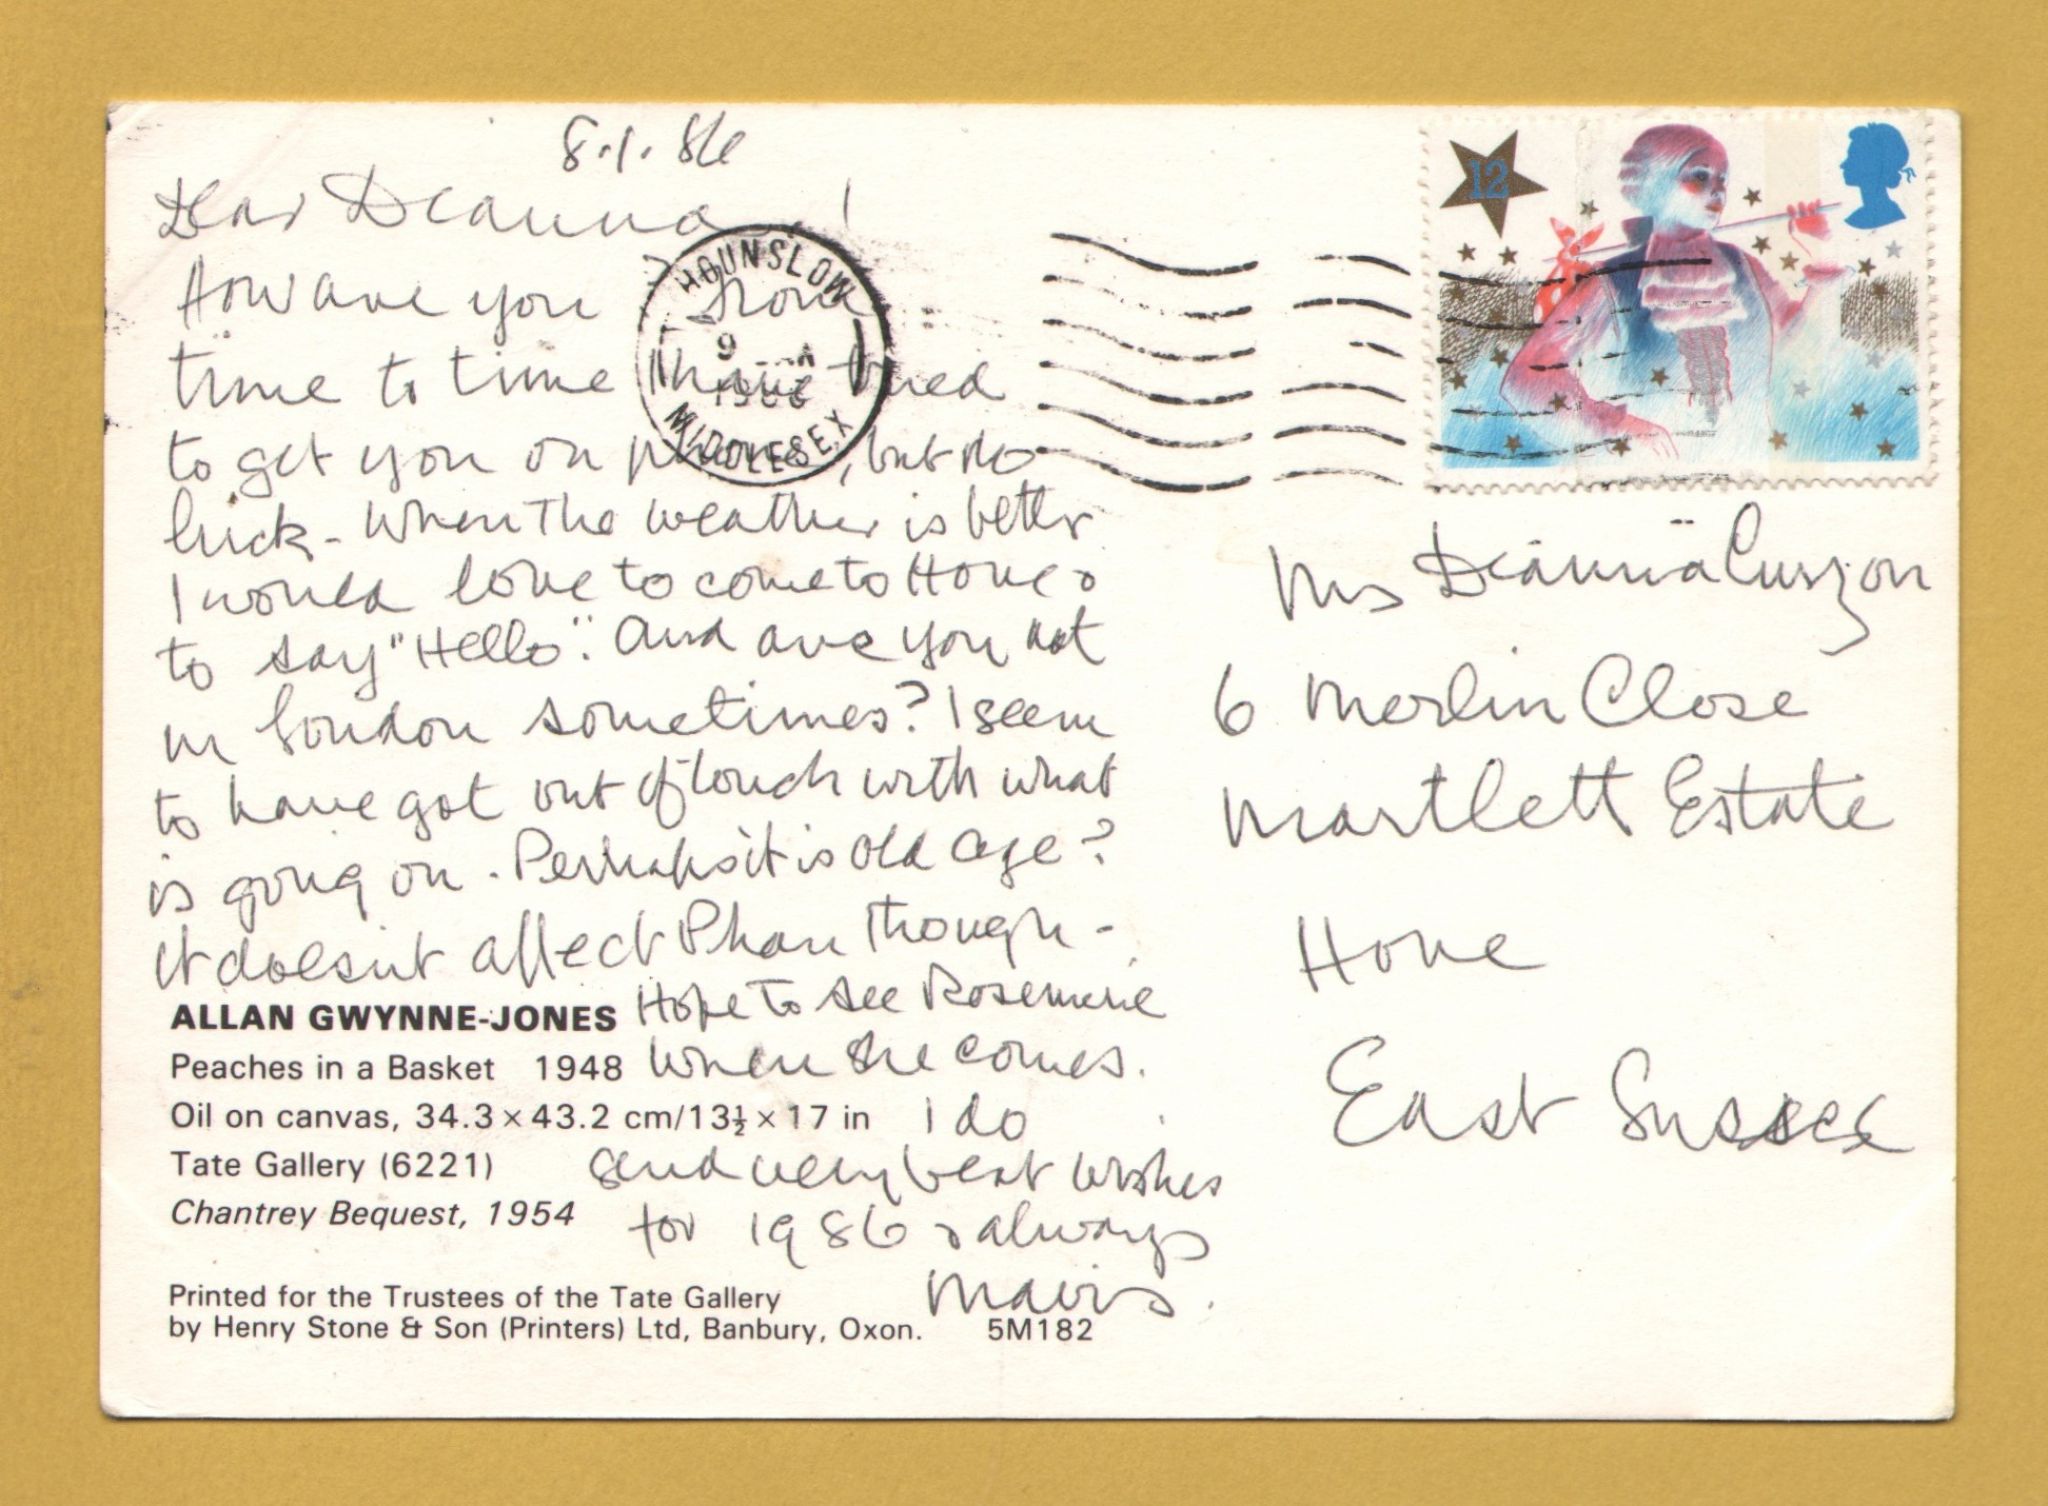 8.1.86
Dear Deanna !
How are you? From
time to time I have tried
to get you on phone, but no
luck - When the weather is better
I would love to come to Hove &
to say "Hello". And are you not
in London sometimes? I seem
to have got out of touch with what
is going on. Perhaps it is old age?
It doesn't affect Phan though -
Hope to see Rosemarie
when she comes.
I do
send very best wishes
for 1986 & always
Mavis.
ALLAN GWYNNE-JONES
Peaches in a Basket 1948
Oil on canvas, 34.3 × 43.2 cm/13½ × 17 in
Tate Gallery (6221)
Chantrey Bequest, 1954
Printed for the Trustees of the Tate Gallery
by Henry Stone & Son (Printers) Ltd, Banbury, Oxon. 5M182
HOUNSLOW
9
1986
MIDDLESEX
12
Deanna Curzon
6 Merlin Close
Martlett Estate
Hove
East Sussex